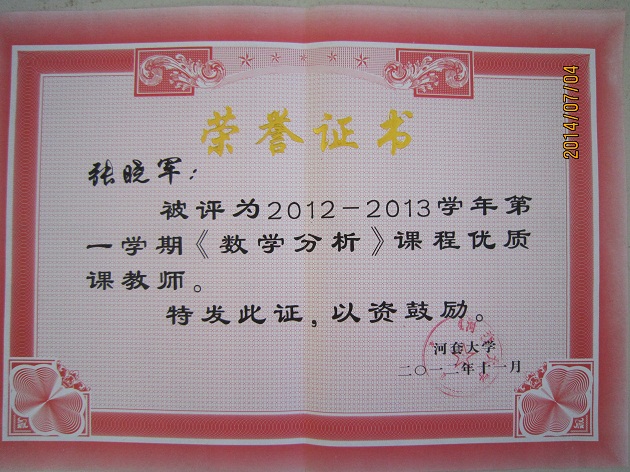 荣誉证书
张晓军：
被评为2012－2013学年第
一学期《数学分析》课程优质
课教师。
特发此证，以资鼓励。
河套大学
二〇一二年十一月
2014/07/04